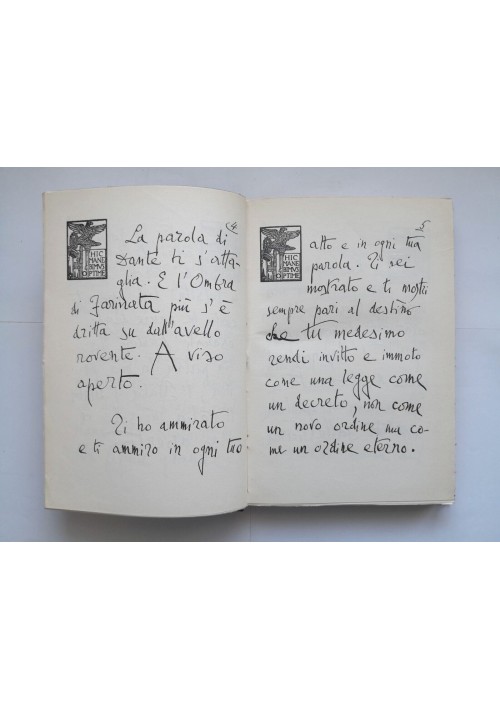 4
HIC
MANE
BIMUS
OPTIME
La parola di
Dante ti s'atta-
glia. E l'Ombra
di Farinata più s'è
dritta su dall'avello
rovente. A viso
aperto.
Ti ho ammirato
e ti ammiro in ogni tuo
5
HIC
MANE
BIMUS
OPTIME
atto e in ogni tua
parola. Ti sei
mostrato e ti mostri
sempre pari al destino
che tu medesimo
rendi invitto e immoto
come una legge come
un decreto, non come
un novo ordine ma co-
me un ordine eterno.